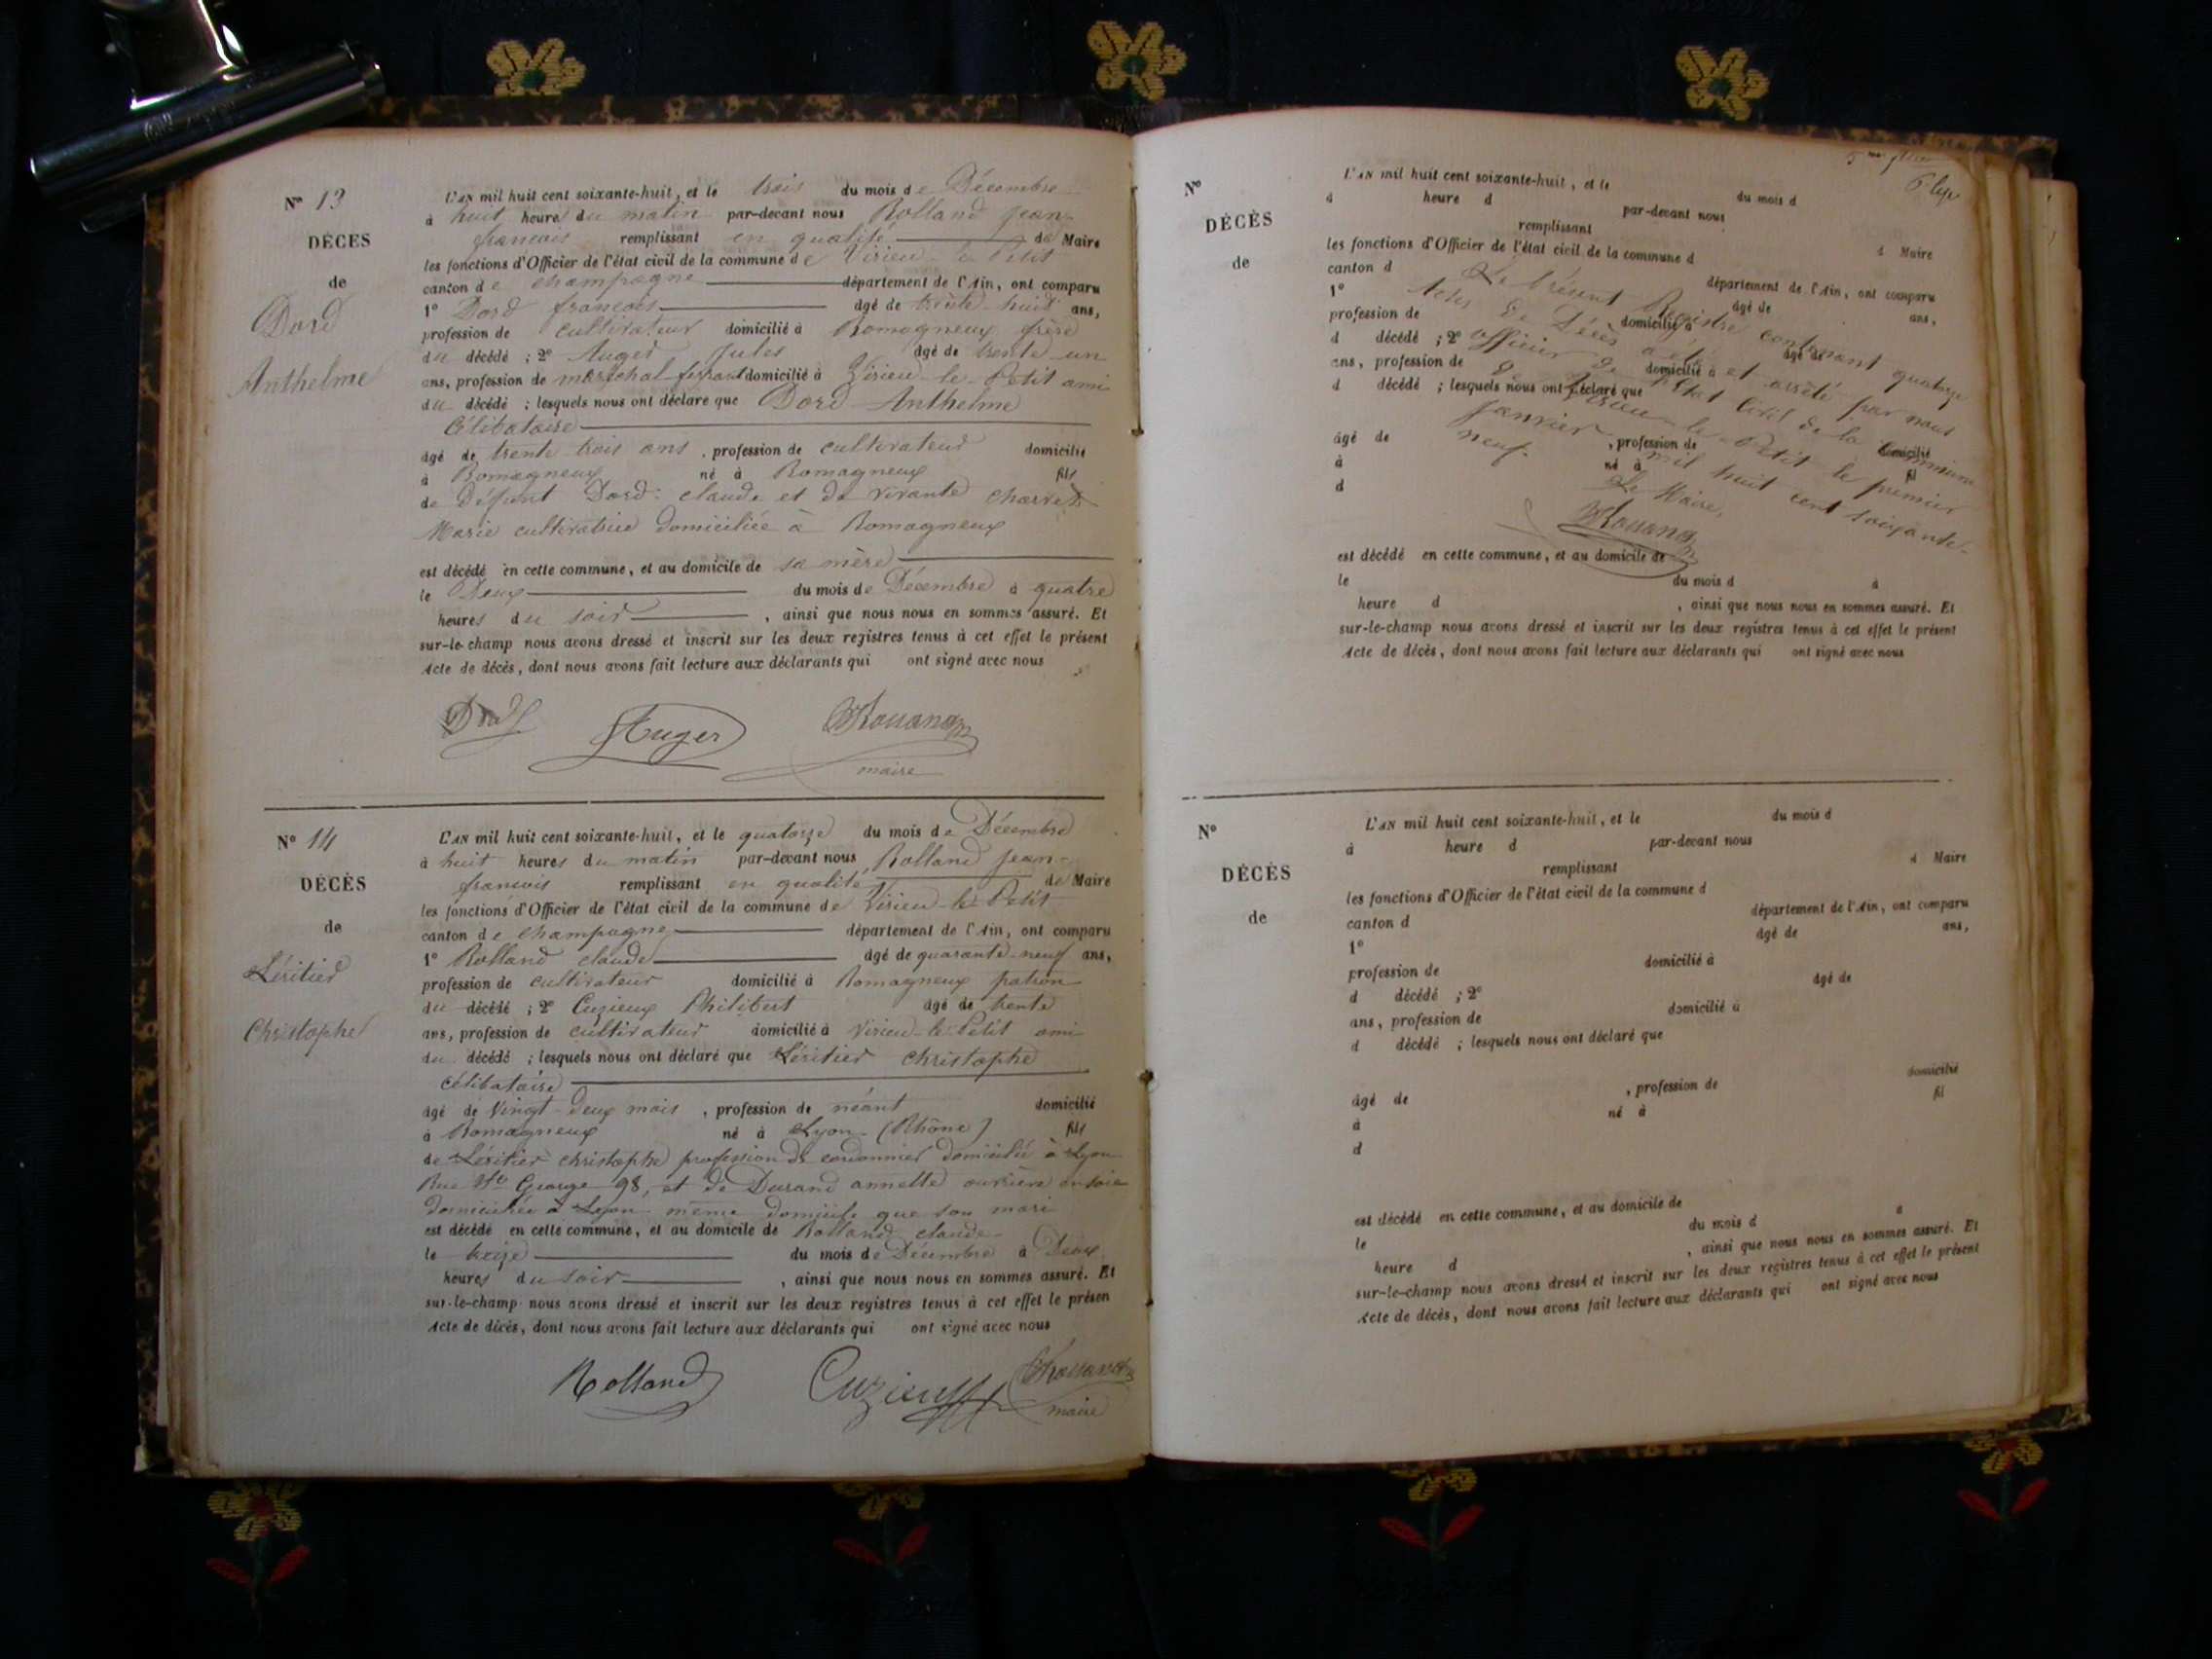 N° 13
DÉCÈS
de
Dord
Anthelme
L'AN mil huit cent soixante-huit, et le trois du mois de Décembre
à huit heures du matin par-devant nous Rolland jean-
françois remplissant en qualité de Maire
les fonctions d'Officier de l'état civil de la commune de Virieu-le-Petit
canton de champagne département de l'Ain, ont comparu
1° Dord françois âgé de trente-huit ans,
profession de cultivateur domicilié à Romagneux frère
du décédé ; 2° Auger jules âgé de trente-un
ans, profession de maréchal-ferrant domicilié à Virieu-le-Petit ami
du décédé ; lesquels nous ont déclaré que Dord Anthelme
Célibataire
âgé de trente trois ans, profession de cultivateur domicilié
à Romagneux né à Romagneux fils
de défunt Dord: claude et de vivante charvet
Marie cultivatrice domiciliée à Romagneux
est décédé en cette commune, et au domicile de sa mère
le Deux du mois de Décembre à quatre
heures du soir, ainsi que nous nous en sommes assuré. Et
sur-le-champ nous avons dressé et inscrit sur les deux registres tenus à cet effet le présent
Acte de décès, dont nous avons fait lecture aux déclarants qui ont signé avec nous
Dord Auger
maire
N° 14
DÉCÈS
de
Léritier
Christophe
L'AN mil huit cent soixante-huit, et le quatorze du mois de Décembre
à huit heures du matin par-devant nous Rolland jean-
francois remplissant en qualité de Maire
les fonctions d'Officier de l'état civil de la commune de Virieu-le-Petit
canton de champagne département de l'Ain, ont comparu
1° Rolland claude âgé de quarante-neuf ans,
profession de cultivateur domicilié à Romagneux patron
du décédé ; 2° Cuzieux Philibert âgé de trente
ans, profession de cultivateur domicilié à Virieu-le-Petit ami
du décédé ; lesquels nous ont déclaré que Léritier christophe
célibataire
âgé de Vingt-deux mois, profession de néant domicilié
à Romagneux né à Lyon (Rhône) fils
de Léritier christophe profession de cordonnier domicilié à Lyon
Rue St George 98, et de Durand annette ouvrière en soie
domiciliée à Lyon même domicile que son mari
est décédé en cette commune, et au domicile de Rolland claude
le treize du mois de Décembre à Deux
heures du soir, ainsi que nous nous en sommes assuré. Et
sur-le-champ nous avons dressé et inscrit sur les deux registres tenus à cet effet le présen
Acte de décès, dont nous avons fait lecture aux déclarants qui ont signé avec nous
Rolland Cuzieux
maire
N°
DÉCÈS
de
L'AN mil huit cent soixante-huit, et le du mois d
à heure d par-devant nous
remplissant d Maire
les fonctions d'Officier de l'état civil de la commune d
canton d département de l'Ain, ont comparu
1° âgé de ans,
profession de domicilié à
d décédé ; 2° âgé de
ans, profession de domicilié à
d décédé ; lesquels nous ont déclaré que
âgé de , profession de domicilié
à né à fil
d
Le présent Registre contenant quatorze
Actes de Décès a été et arrêté par nous
officier de l'Etat Civil de la Commune
de Virieu-le-Petit le premier
janvier mil huit cent soixante-
neuf.
Le Maire,
est décédé en cette commune, et au domicile de
le du mois d à
heure d , ainsi que nous nous en sommes assuré. Et
sur-le-champ nous avons dressé et inscrit sur les deux registres tenus à cet effet le présent
Acte de décès, dont nous avons fait lecture aux déclarants qui ont signé avec nous
N°
DÉCÈS
de
L'AN mil huit cent soixante-huit, et le du mois d
à heure d par-devant nous
remplissant d Maire
les fonctions d'Officier de l'état civil de la commune d
canton d département de l'Ain, ont comparu
1° âgé de ans,
profession de domicilié à
d décédé ; 2° âgé de
ans, profession de domicilié à
d décédé ; lesquels nous ont déclaré que
âgé de , profession de domicilié
à né à fil
d
est décédé en cette commune, et au domicile de
le du mois d à
heure d , ainsi que nous nous en sommes assuré. Et
sur-le-champ nous avons dressé et inscrit sur les deux registres tenus à cet effet le présent
Acte de décès, dont nous avons fait lecture aux déclarants qui ont signé avec nous